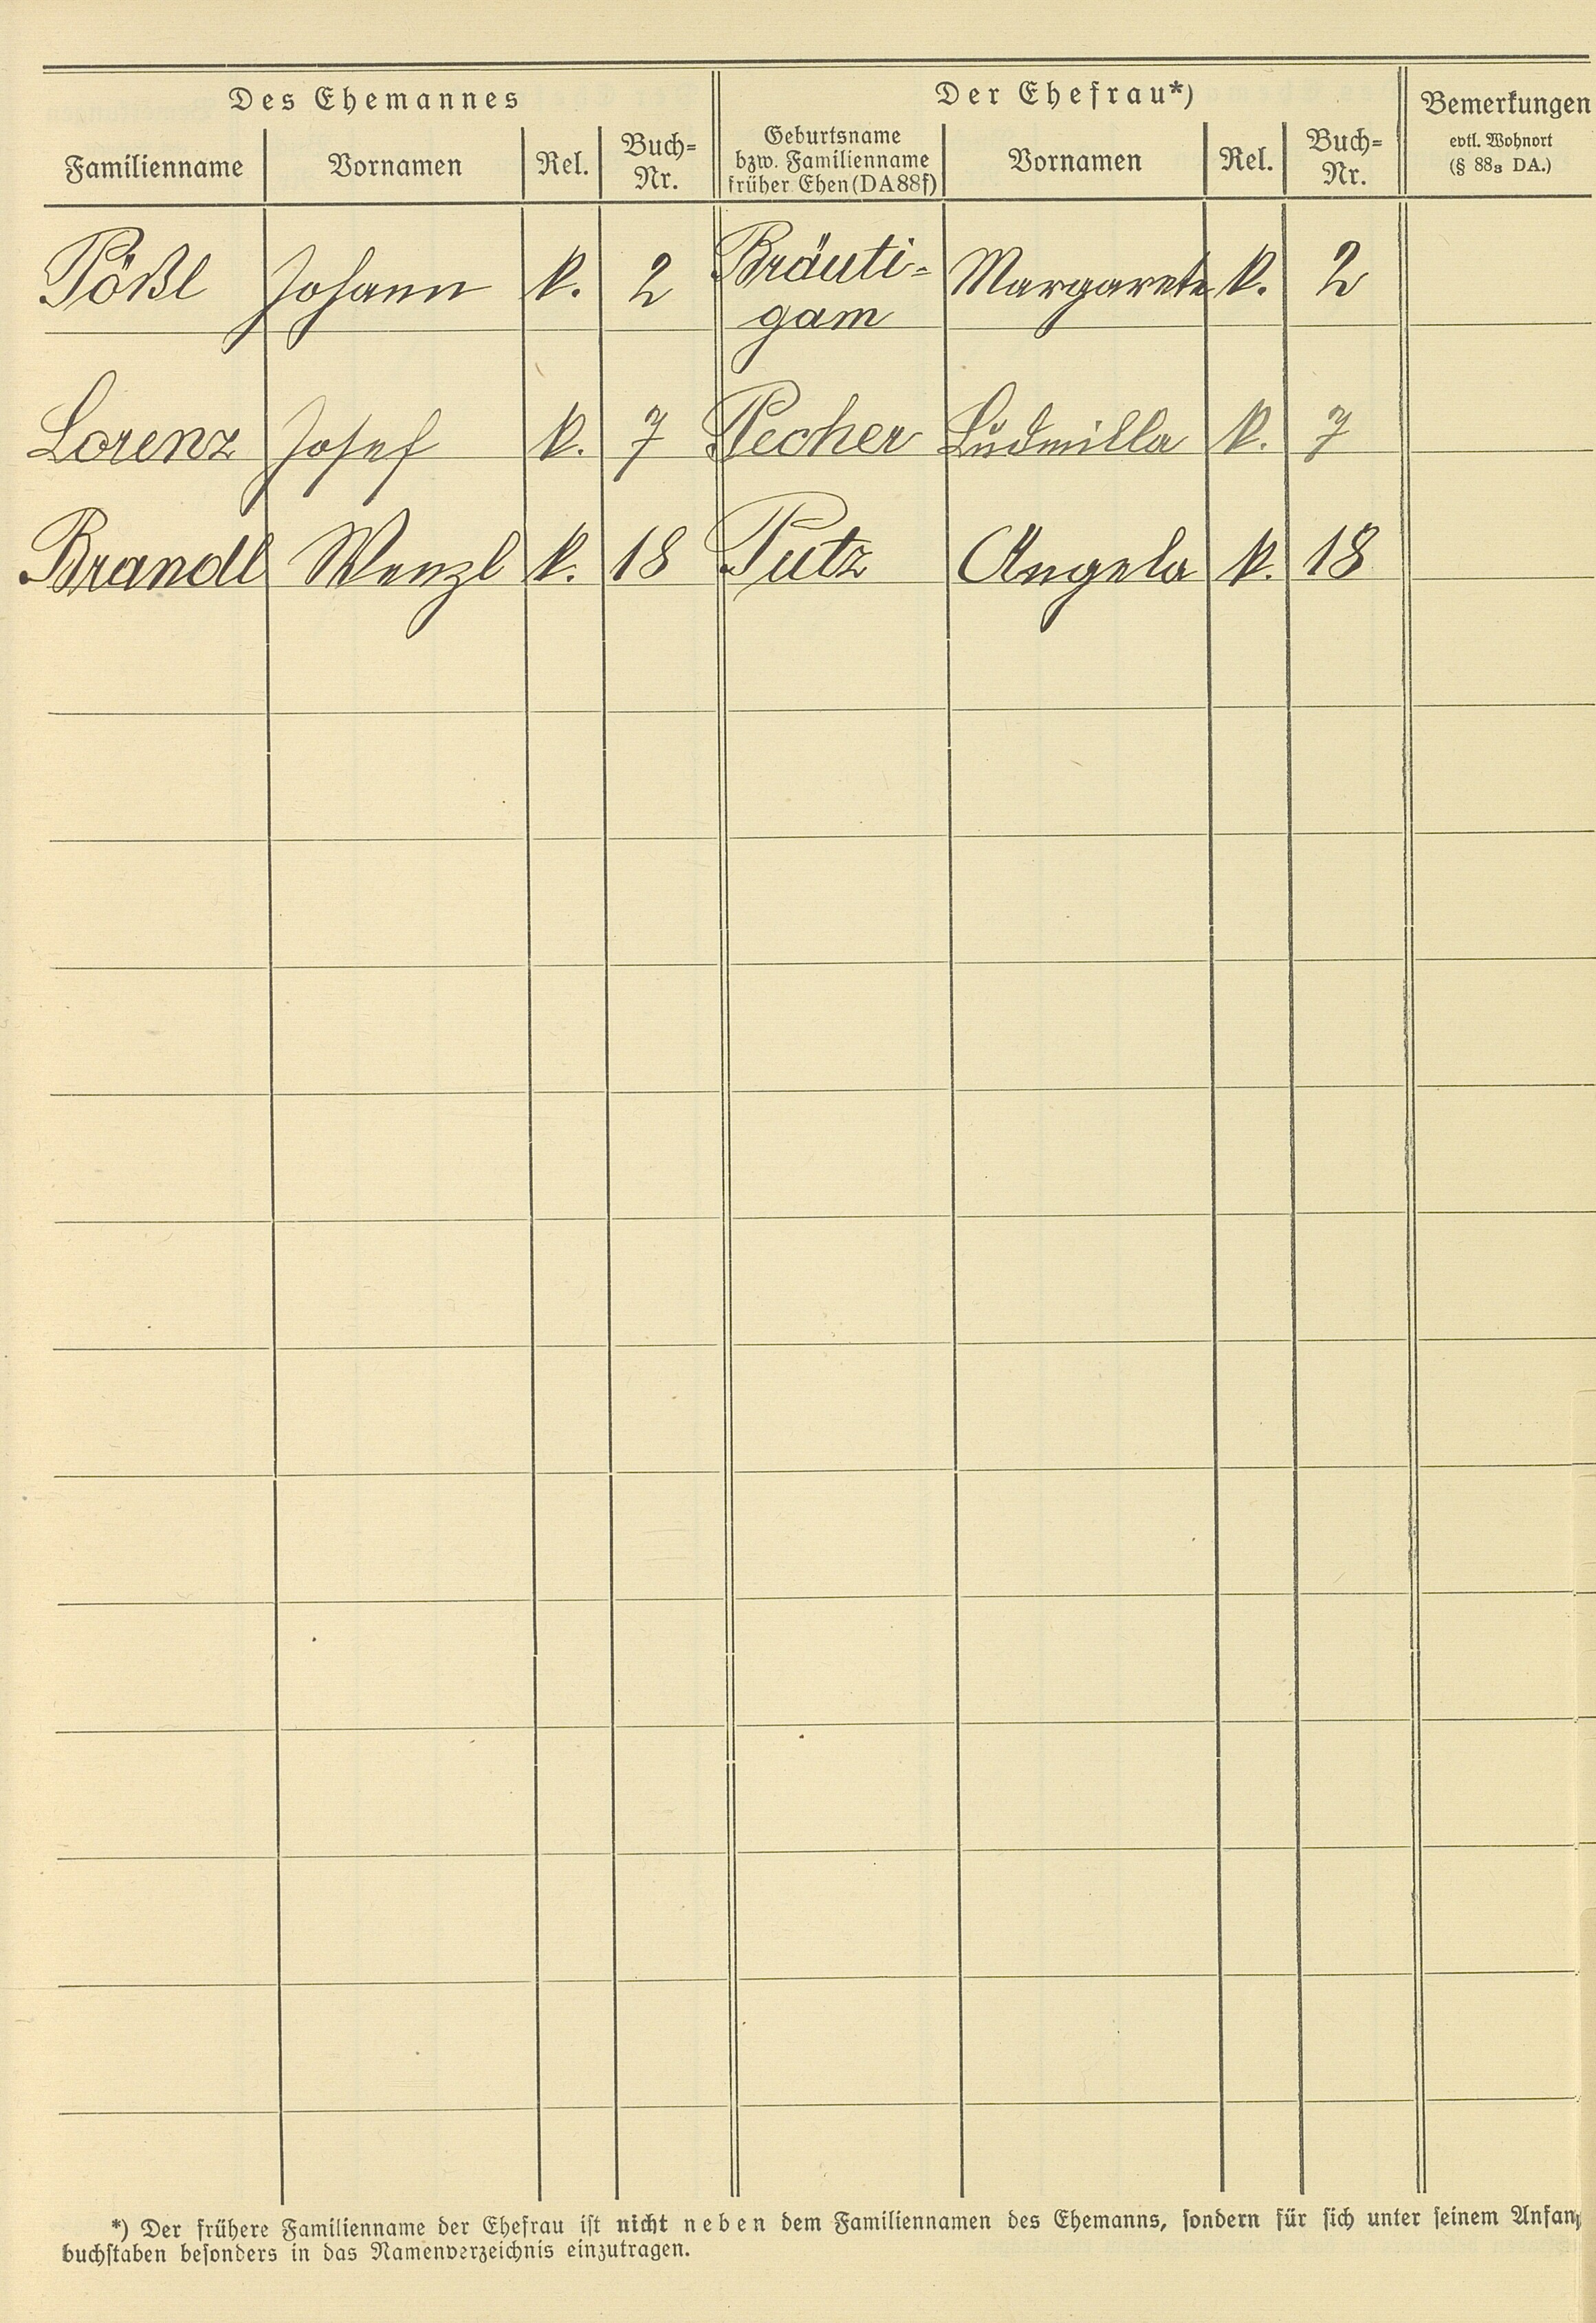 Des Ehemannes Der Ehefrau*) Bemerkungen
Familienname Vornamen Rel. Buch= Nr. Geburtsname bzw. Familienname früher. Ehen (DA 88f) Vornamen Rel. Buch= Nr. evtl. Wohnort (§ 88₃ DA.)
Pößl Johann k. 2 Bräuti= Margarete k. 2
gam
Lorenz Josef k. 7 Pecher Ludmilla k. 7
Brandl Wenzl k. 18 Putz Angela k. 18
*) Der frühere Familienname der Ehefrau ist nicht neben dem Familiennamen des Ehemanns, sondern für sich unter seinem Anfan
buchstaben besonders in das Namenverzeichnis einzutragen.